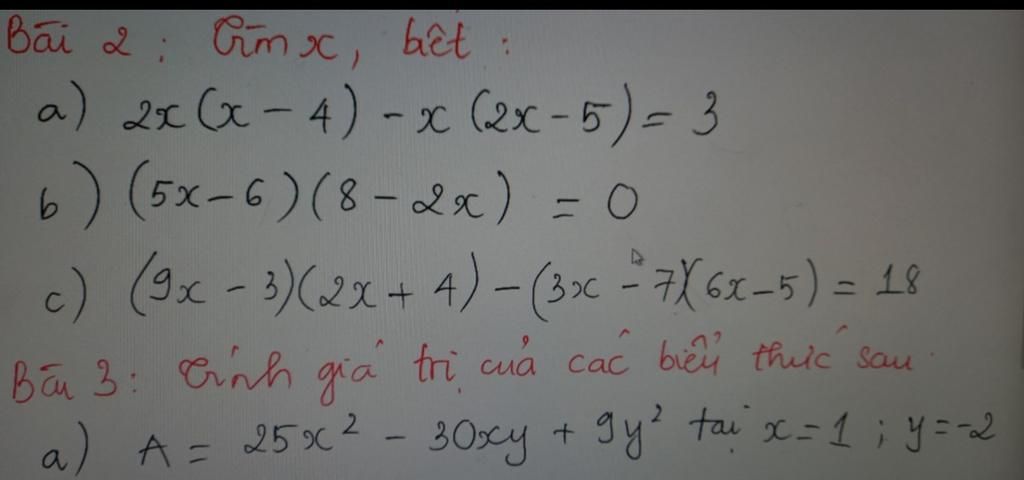 Bài 2 : Tìm x, bết :
a) 2x(x - 4) - x(2x - 5) = 3
b) (5x - 6)(8 - 2x) = 0
c) (9x - 3)(2x + 4) - (3x - 7)(6x - 5) = 18
Bài 3 : Tính giá trị của các biểu thức sau
a) A = 25x² - 30xy + 9y² tại x = 1 ; y = -2